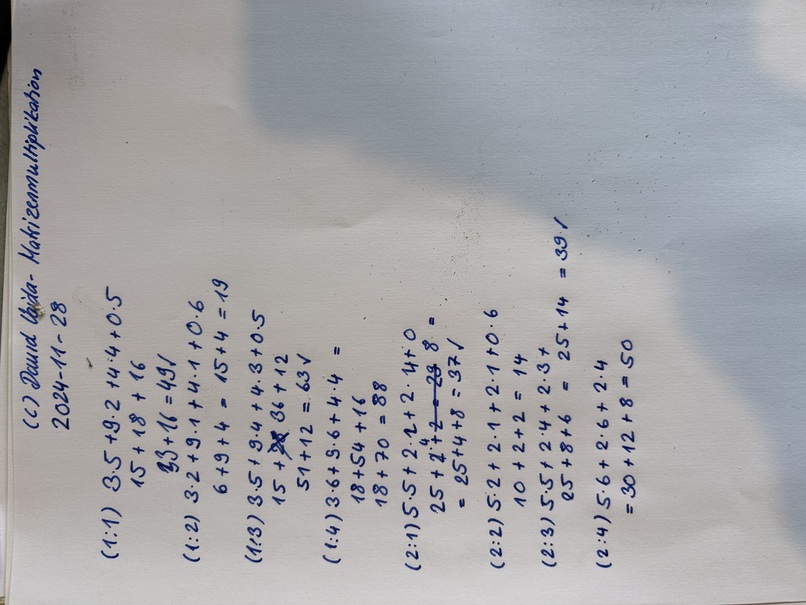 (C) David - Matrizenmultiplikation
2024-11-28
(1:1) 3·5+9·2+4·4+0·5
15+18+16
33+16=49✓
(1:2) 3·2+9·1+4·1+0·6
6+9+4=15+4=19
(1:3) 3·5+9·4+4·3+0·5
15+36+12
51+12=63✓
(1:4) 3·6+9·6+4·4=
18+54+16
18+70=88
(2:1) 5·5+2·2+2·4+0
25+4+8=
=25+4+8=37✓
(2:2) 5·2+2·1+2·1+0·6
10+2+2=14
(2:3) 5·5+2·4+2·3+
25+8+6=25+14=39✓
(2:4) 5·6+2·6+2·4
=30+12+8=50